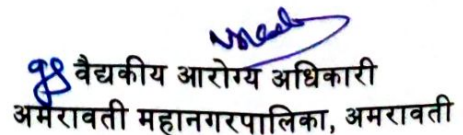 वैद्यकीय आरोग्य अधिकारी
अमरावती महानगरपालिका, अमरावती